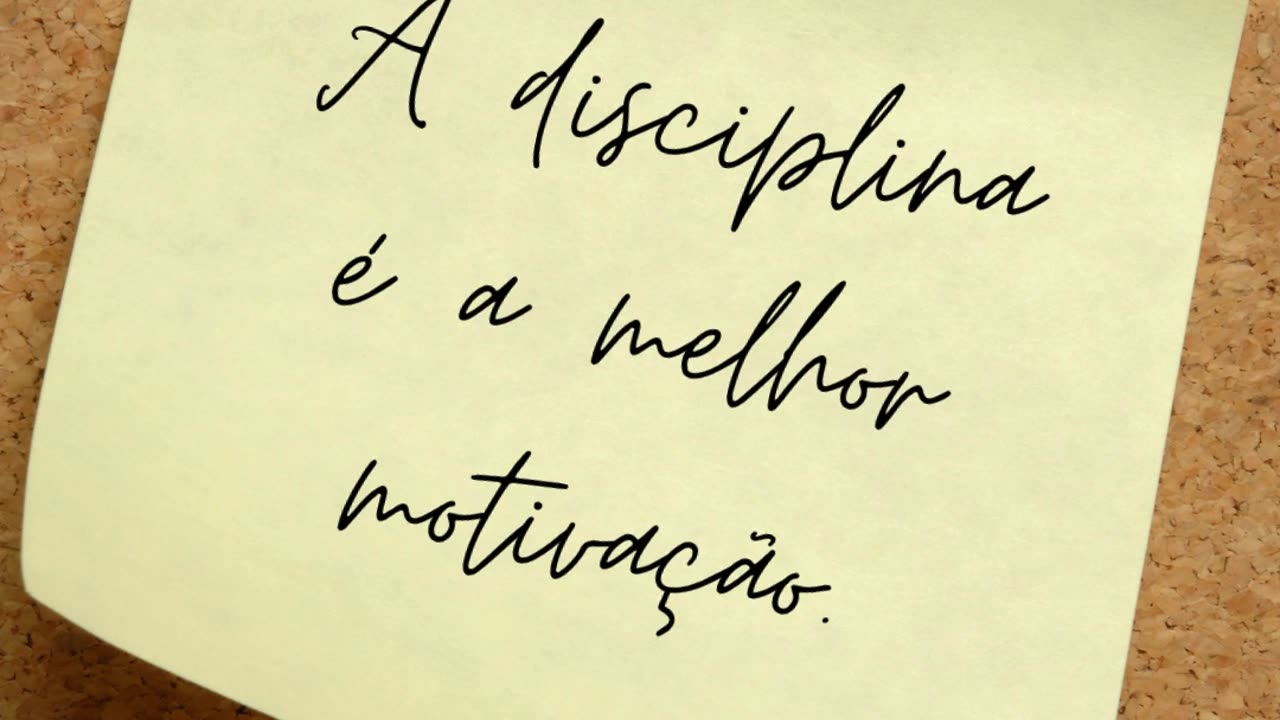 A disciplina
é a melhor
motivação.